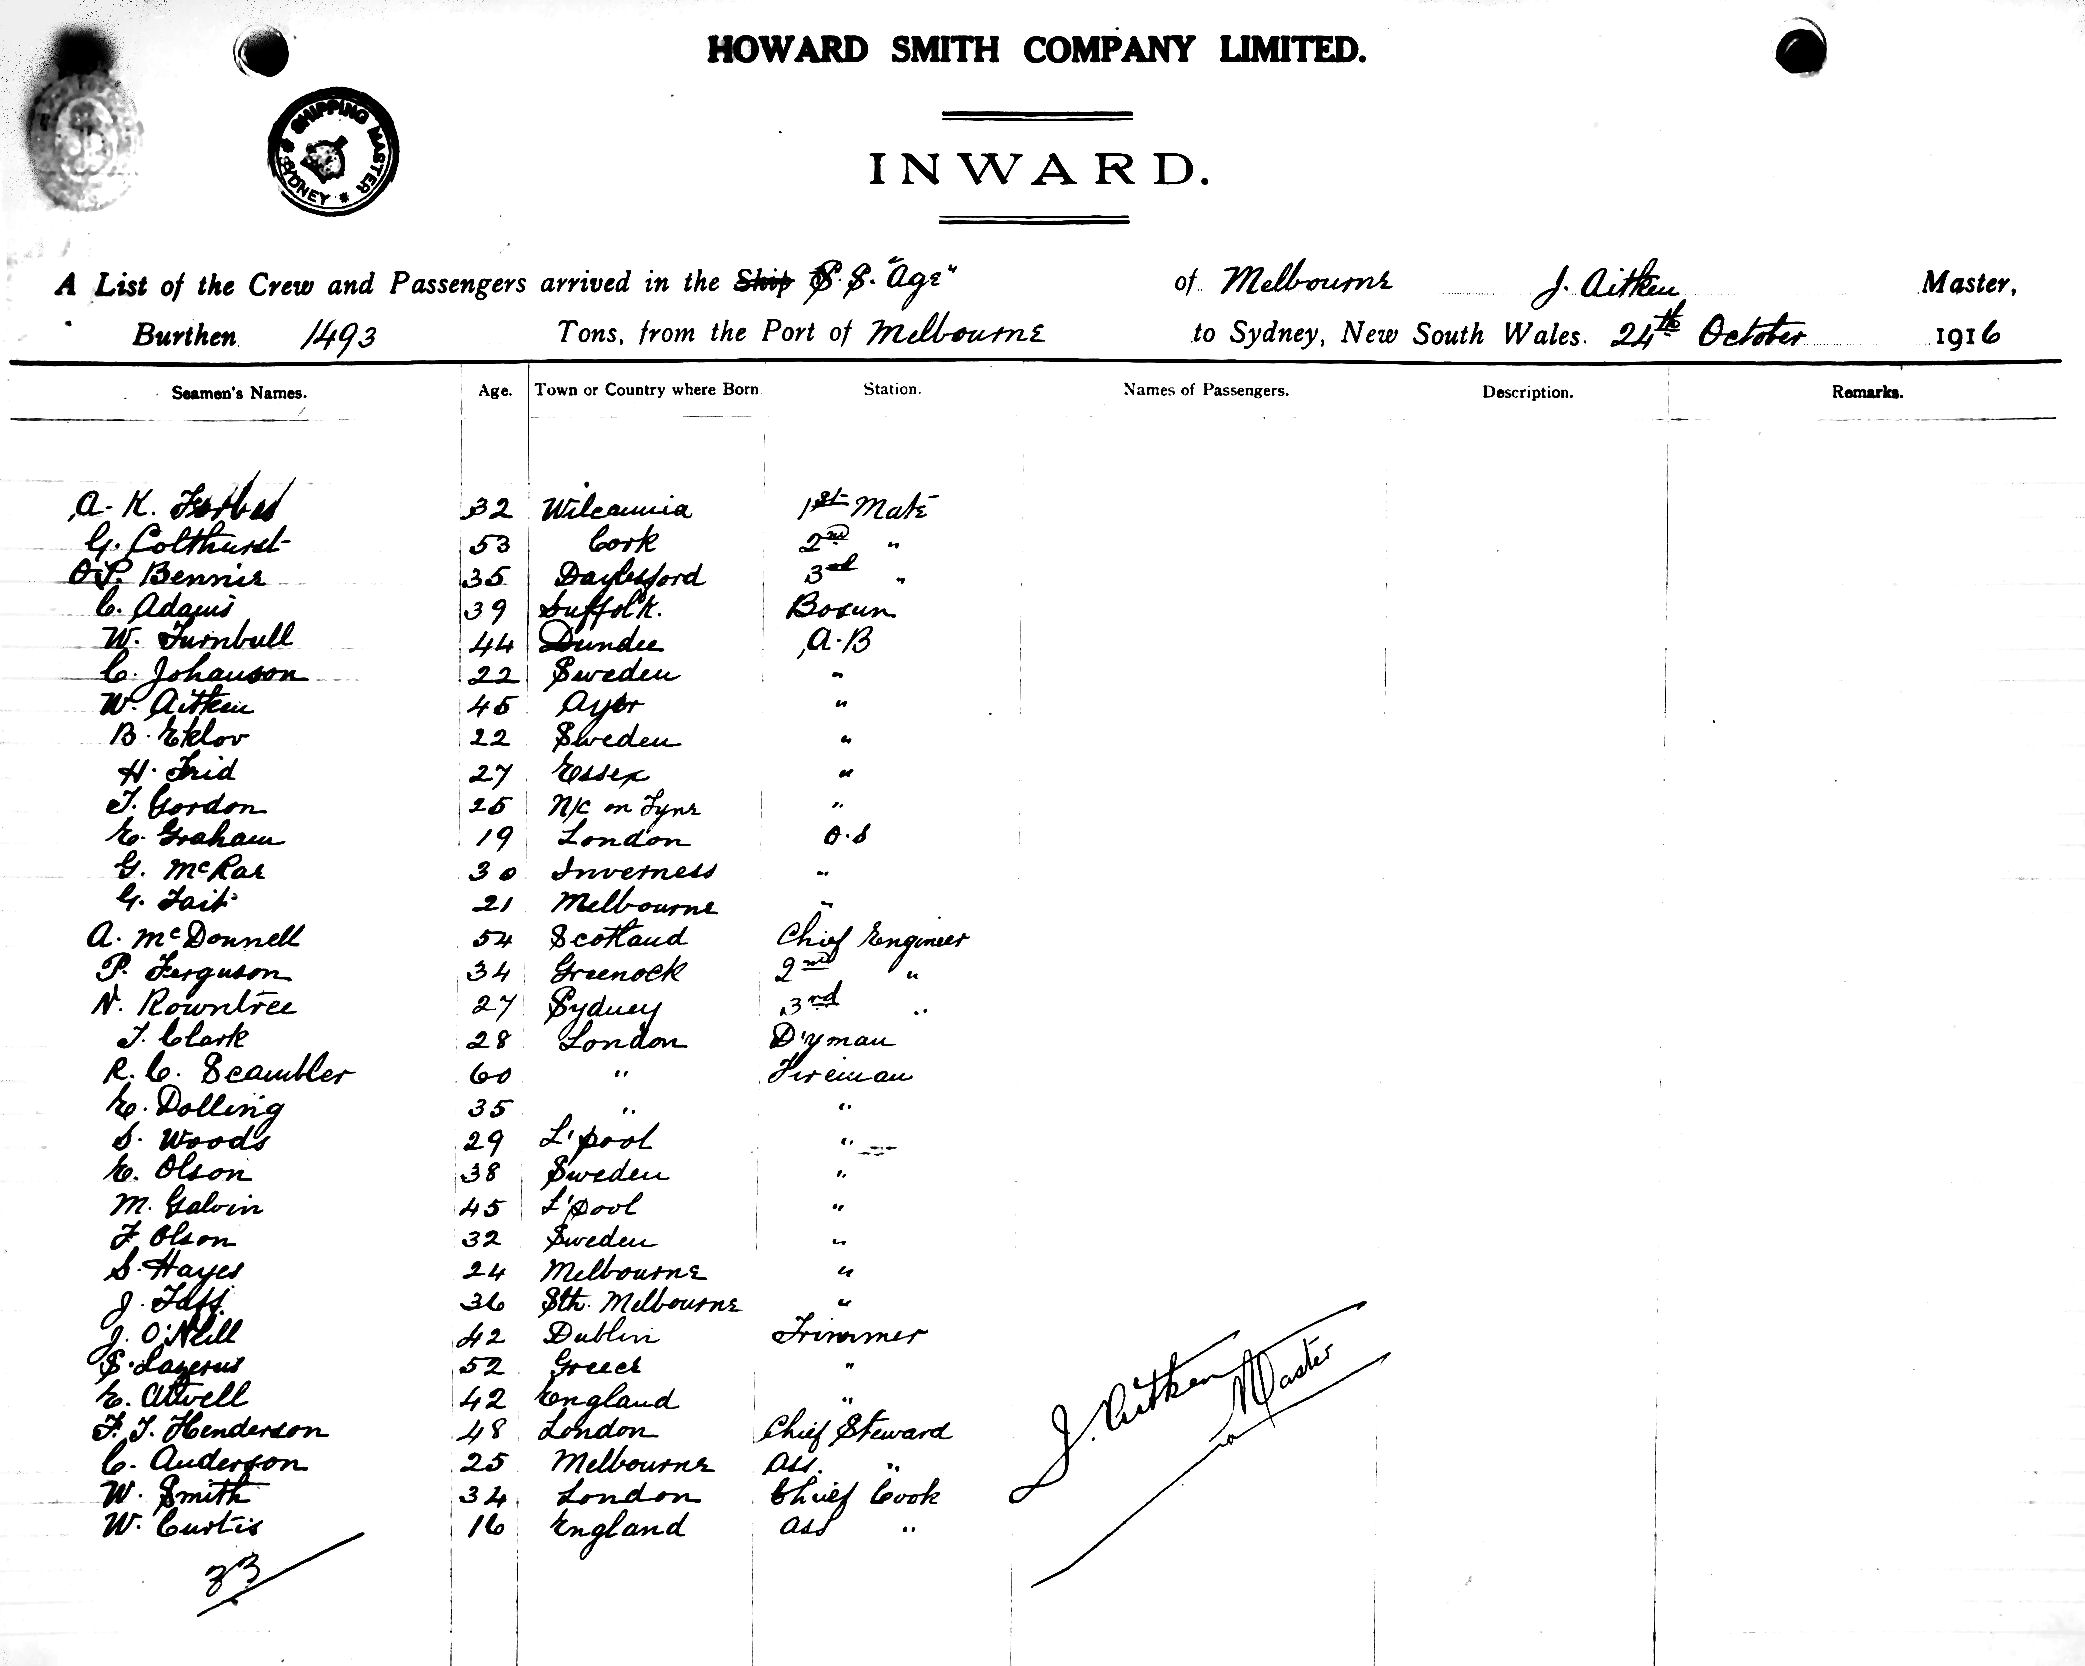 HOWARD SMITH COMPANY LIMITED.
SHIPPING MASTER SYDNEY
INWARD.
A List of the Crew and Passengers arrived in the Ship S.S. "Age" of Melbourne J. Aitken Master,
Burthen 1493 Tons, from the Port of Melbourne to Sydney, New South Wales. 24th October 1916
Seamen's Names. Age. Town or Country where Born Station. Names of Passengers. Description. Remarks.
A. K. Forbes 32 Wilcannia 1st Mate
G. Colthurst 53 Cork 2nd "
O.P. Bennie 35 Daylesford 3rd "
C. Adams 39 Suffolk. Bosun
W. Turnbull 44 Dundee A.B
C. Johanson 22 Sweden "
W. Aitken 45 Ayr "
B. Eklov 22 Sweden "
H. Frid 27 Essex "
T. Gordon 25 N/C on Tyne "
E. Graham 19 London O.S
G. McRae 30 Inverness "
G. Tait 21 Melbourne "
A. McDonnell 54 Scotland Chief Engineer
P. Ferguson 34 Greenock 2nd "
N. Rowntree 27 Sydney 3rd "
T. Clark 28 London D'yman
R. C. Scambler 60 " Fireman
E. Dolling 35 " "
S. Woods 29 L'pool "
E. Olson 38 Sweden "
M. Galvin 45 L'pool "
F. Olson 32 Sweden "
S. Hayes 24 Melbourne "
J. Taff 36 Sth. Melbourne "
J. O'Neill 42 Dublin Trimmer
S. Lazerus 52 Greece "
E. Atwell 42 England "
F. T. Henderson 48 London Chief Steward
C. Anderson 25 Melbourne Ass. "
W. Smith 34 London Chief Cook
W. Curtis 16 England Ass "
J. Aitken
Master
33